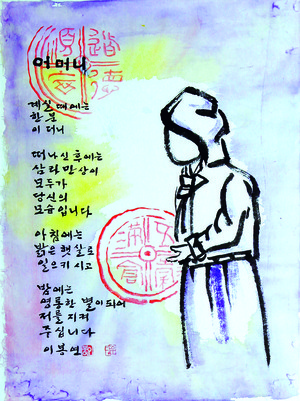 어머니
계실 때에는
한 분
이 더니
떠나신 후에는
삼라만상이
모두가
당신의
모습입니다
아침에는
밝은 햇살로
일으키시고
밤에는
영롱한 별이 되어
저를 지켜
주십니다
이봉연